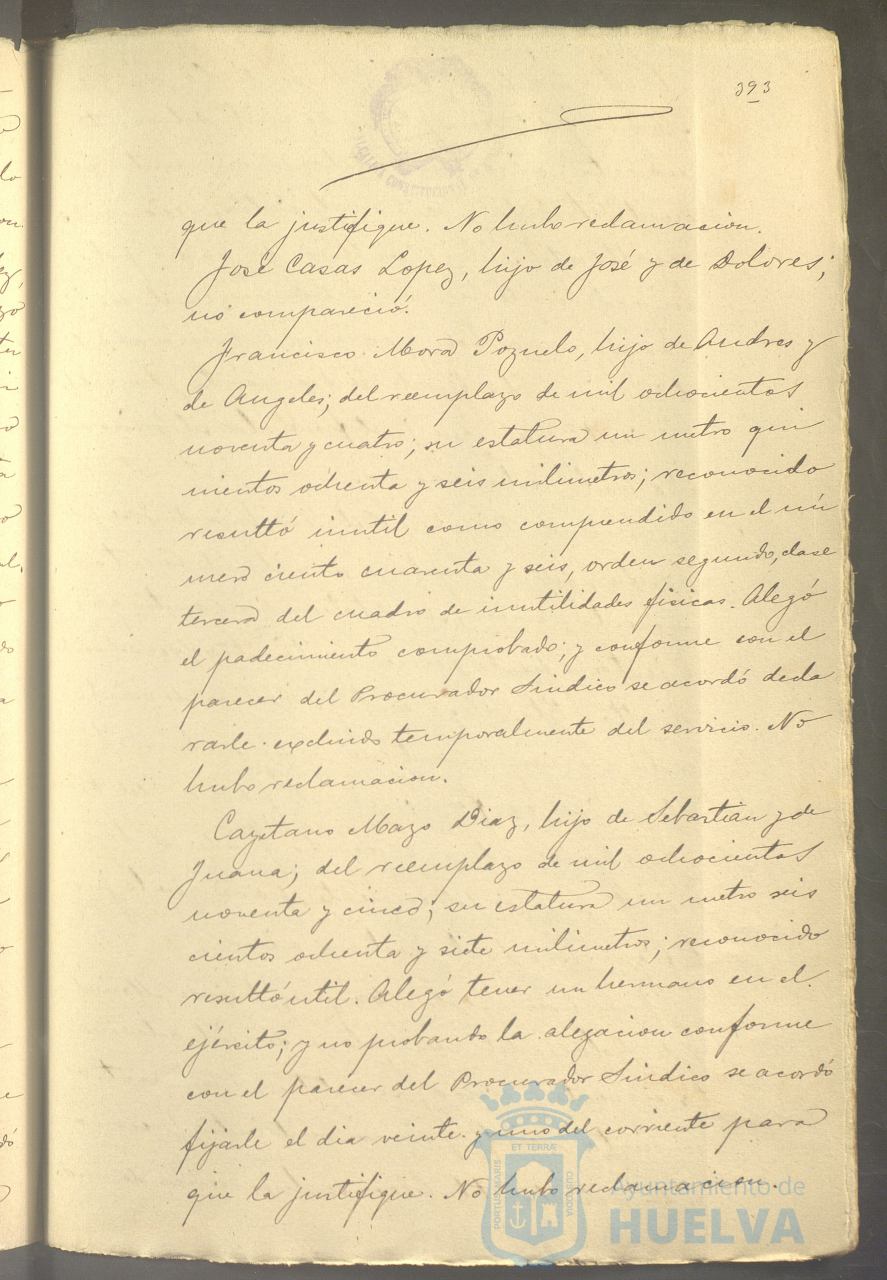 393
que la justifique. No hubo reclamacion.
José Casas Lopez, hijo de José y de Dolores;
no compareció.
Francisco Mora Pozuelo, hijo de Andres y
de Angeles; del reemplazo de mil ochocientos
noventa y cuatro; su estatura un metro qui
nientos ochenta y seis milimetros; reconocido
resultó inutil como comprendido en el nú
mero ciento cuarenta y seis, orden segundo, clase
tercera del cuadro de inutilidades fisicas. Alegó
el padecimiento comprobado; y conforme con el
parecer del Procurador Sindico se acordó decla
rarle excluido temporalmente del servicio. No
hubo reclamacion.
Cayetano Mazo Diaz, hijo de Sebastian y de
Juana; del reemplazo de mil ochocientos
noventa y cinco; su estatura un metro seis
cientos ochenta y siete milimetros; reconocido
resultó util. Alegó tener un hermano en el
ejército; y no probando la alegacion conforme
con el parecer del Procurador Sindico se acordó
fijarle el dia veinte y uno del corriente para
que la justifique. No hubo reclamacion.
ET TERRÆ
PORTUS MARIS
CUSTODIA
Ayuntamiento de
HUELVA